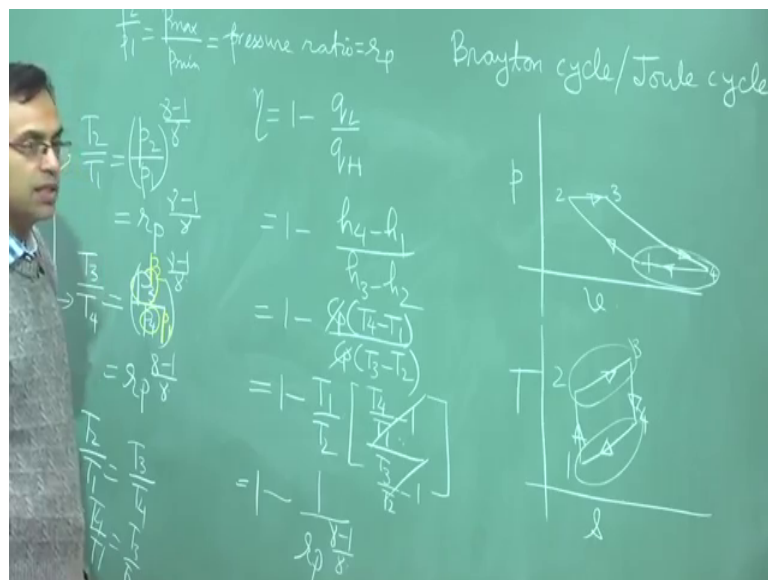 p₂/p₁ = pmax/pmin = pressure ratio = rp
Brayton cycle/Joule cycle
T₂/T₁ = (p₂/p₁)^((γ-1)/γ)
= rp^((γ-1)/γ)
T₃/T₄ = (p₃/p₄)^((γ-1)/γ)
p₂
p₁
= rp^((γ-1)/γ)
T₂/T₁ = T₃/T₄
T₄/T₁ = T₃/
η = 1 - qL/qH
= 1 - (h₄-h₁)/(h₃-h₂)
= 1 - cp(T₄-T₁)/cp(T₃-T₂)
= 1 - T₁/T₂ [(T₄/T₁ - 1)/(T₃/T₂ - 1)]
= 1 - 1/rp^((γ-1)/γ)
p
2 3
1 4
v
T
3
2
4
1
s